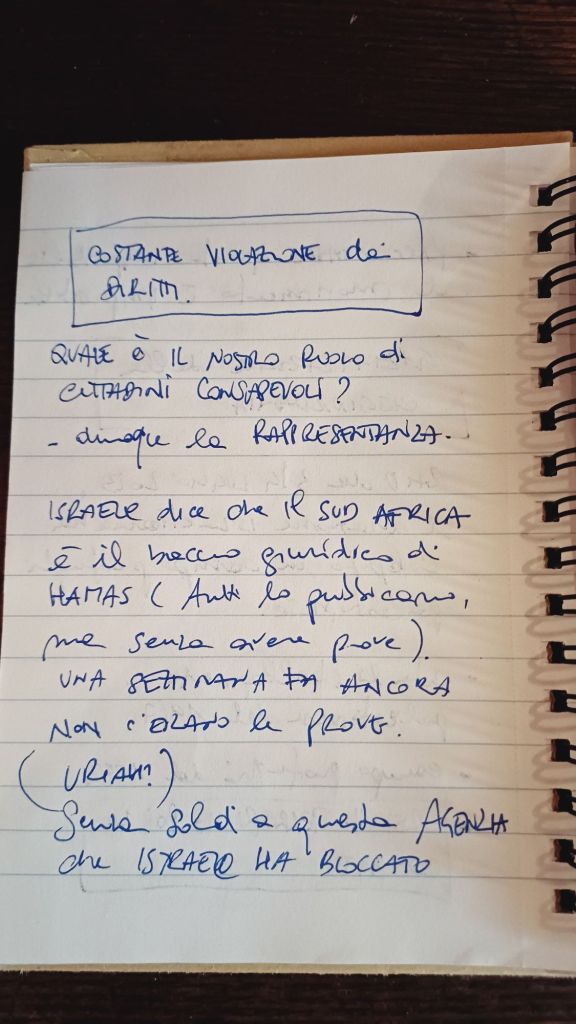 COSTANTE VIOLAZIONE dei
DIRITTI.
QUALE È IL NOSTRO RUOLO di
CITTADINI CONSAPEVOLI?
- dunque la RAPPRESENTANZA.
ISRAELE dice che il SUD AFRICA
è il braccio giuridico di
HAMAS (tutti lo pubblicano,
ma senza avere prove).
UNA SETTIMANA FA ANCORA
NON C'ERANO le PROVE.
(URIAH?)
Senza soldi a questa AGENZIA
che ISRAELE HA BLOCCATO